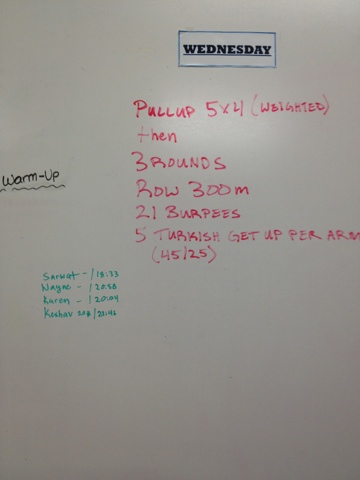 WEDNESDAY
PULLUP 5x4 (WEIGHTED)
then
3 ROUNDS
ROW 300m
21 BURPEES
5 TURKISH GET UP PER ARM
(45/25)
Warm-Up
Sarwat - / 18:33
Wayne - / 20:58
Karen - / 20:04
Keshav 20# / 23:42